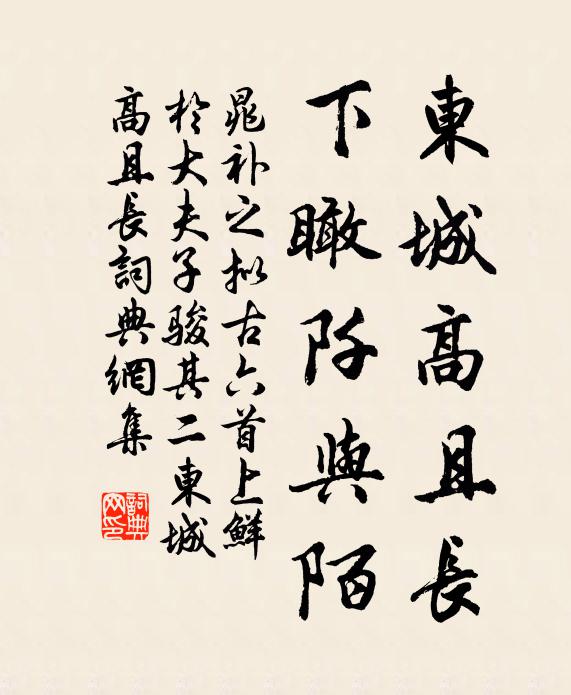 東城高且長
下瞰阡與陌
晁补之拟古六首上鮮
於大夫子骏其二東城
高且長詞典網集
詞典
网印